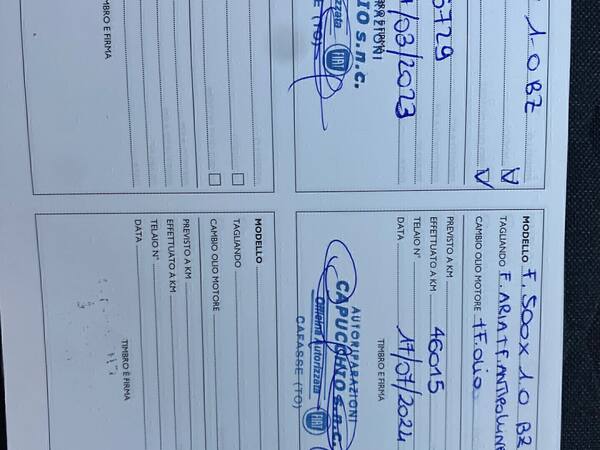 1.0 BZ
/03/2023
RIPARAZIONI
IO s.n.c.
rizzata
FIAT
(TO)
MODELLO F. 500X 1.0 BZ
TAGLIANDO F. ARIA + F. ANTIPOLLINE
CAMBIO OLIO MOTORE + F. olio
PREVISTO A KM
EFFETTUATO A KM 46015
TELAIO N°
DATA 17/07/2024
TIMBRO E FIRMA
AUTORIPARAZIONI
CAPUCCHIO s.n.c.
Officina Autorizzata FIAT
CAFASSE (TO)
TIMBRO E FIRMA
MODELLO
TAGLIANDO
CAMBIO OLIO MOTORE
PREVISTO A KM
EFFETTUATO A KM
TELAIO N°
DATA
TIMBRO E FIRMA